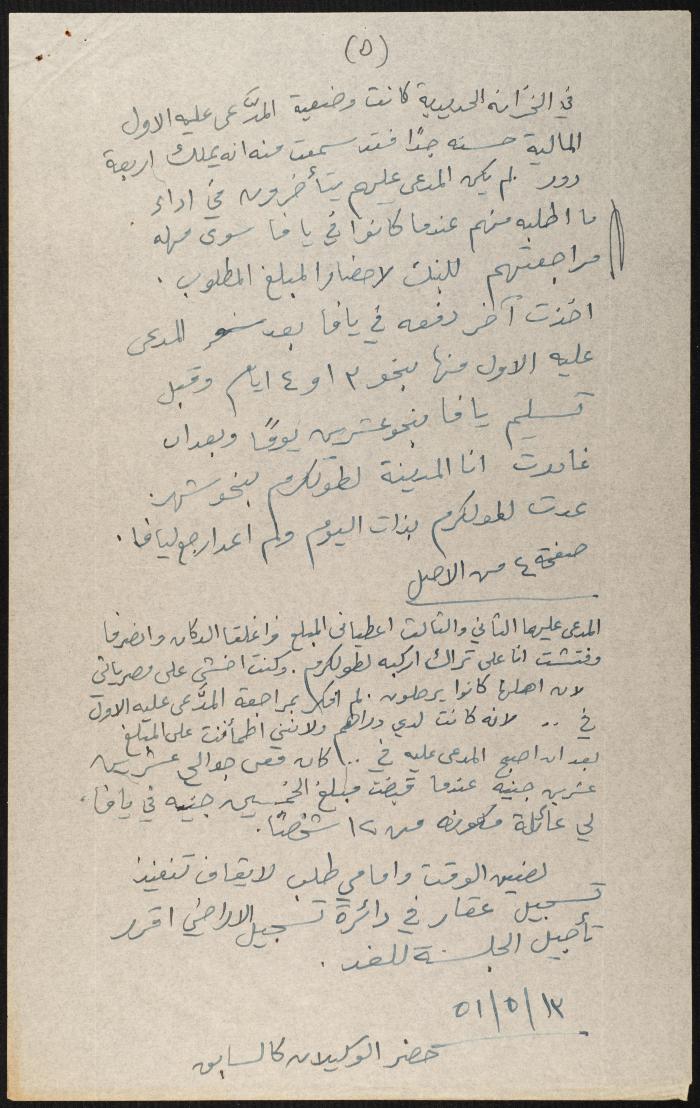 (٥)
في الخزانه الحديدية كانت وضعية المدَّعى عليه الاول
المالية حسنه جدًا فقد سمعت منه انه يملك اربعة
دور لم يكن المدعى عليهم يتأخرون في اداء
ما اطلبه منهم عندما كانوا في يافا سوى مهله
مراجعتهم للبنك لاحضار المبلغ المطلوب .
اخذت آخر دفعه في يافا بعد سفر المدعى
عليه الاول منها بنحو ٣ او ٤ ايام وقبل
تسليم يافا بنحو عشرين يومًا وبعد ان
غادرت انا المدينة لطولكرم بنحو شهر .
عدت لطولكرم بذات اليوم ولم اعد ارجع ليافا .
صفحة ٤ من الاصل
المدعى عليهما الثاني والثالث اعطياني المبلغ واغلقا الدكان وانصرفا
وفتشت انا على تراك اركبه لطولكرم . وكنت اخشى على مصرياتي
لان اهلها كانوا يرحلون . لم افكر بمراجعة المدَّعى عليه الاول
في .. لانه كانت لدي دراهم ولانني اطمأننت على المبلغ
بعد ان اصبح المدعى عليه في .. كان معي حوالي عشرين
عشرين جنيه عندما قبضت مبلغ الخمسين جنيه في يافا .
لي عائلة مكونه من ١٢ شخصًا .
لضيق الوقت وامامي طلب لايقاف تنفيذ
تسجيل عقار في دائرة تسجيل الاراضي اقرر
تأجيل الجلسة للغد .
٥١/٥/١٣
حضر الوكيلان كالسابق